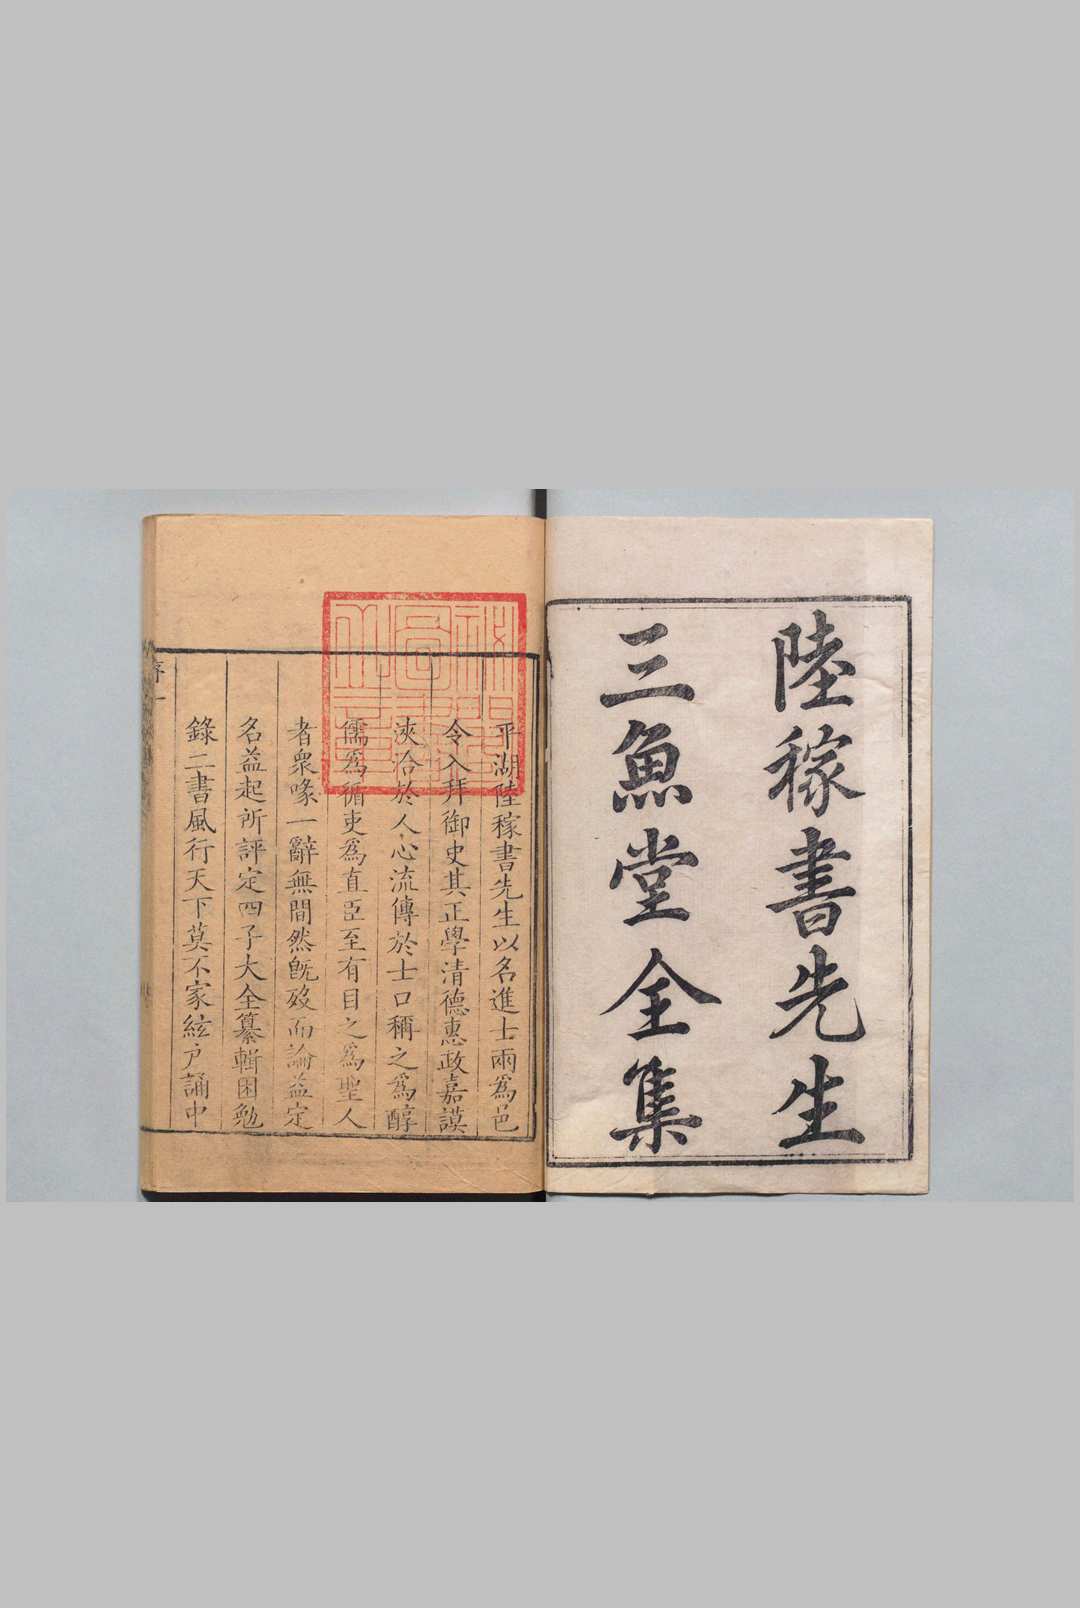 陸稼書先生
三魚堂全集
平湖陸稼書先生以名進士兩為邑
令入拜御史其正學清德惠政嘉謨
浹洽於人心流傳於士口稱之為醇
儒為循吏為直臣至有目之為聖人
者衆喙一辭無間然旣歿而論益定
名益起所評定四子大全纂輯困勉
錄二書風行天下莫不家絃户誦中
序一